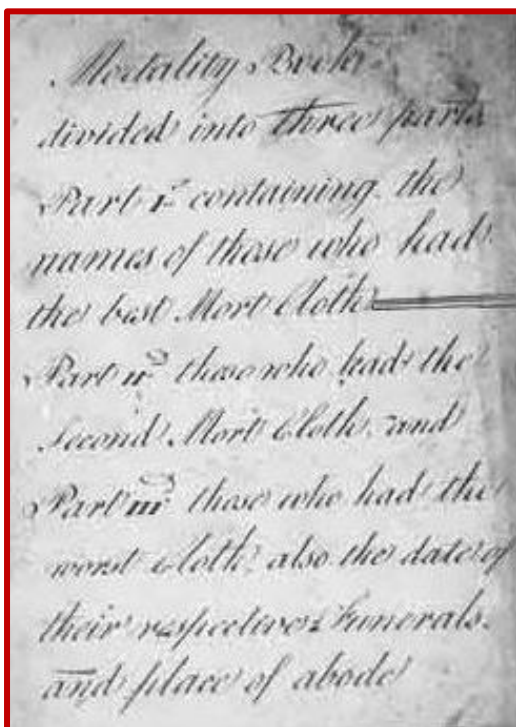 Mortality Book
divided into three parts
Part 1st containing the
names of those who had
the best Mort Cloth
Part iid those who had the
Second Mort Cloth. and
Part iiid those who had the
worst cloth, also the date of
their respective Funerals.
and place of abode